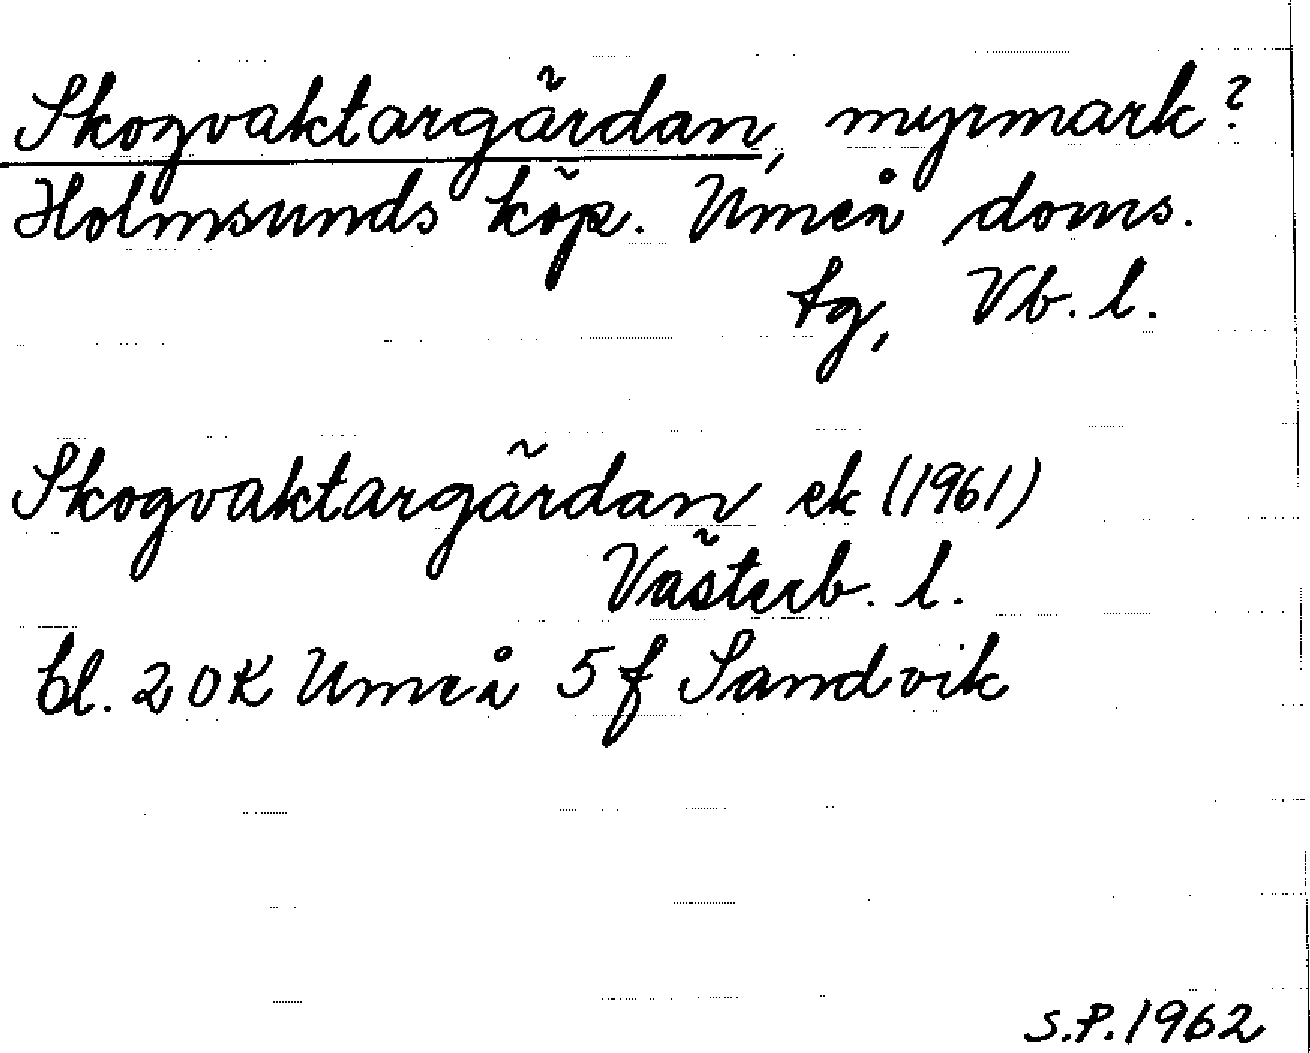 Skogvaktargärdan, myrmark?
Holmsunds köp. Umeå doms.
tg, Vb. l.
Skogvaktargärdan ek (1961)
Västerb. l.
bl. 20K Umeå 5f Sandvik
S.P. 1962